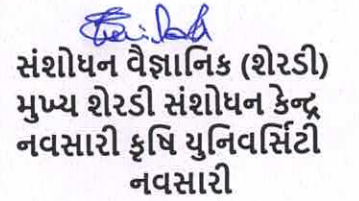 સંશોધન વૈજ્ઞાનિક (શેરડી)
મુખ્ય શેરડી સંશોધન કેન્દ્ર
નવસારી કૃષિ યુનિવર્સિટી
નવસારી